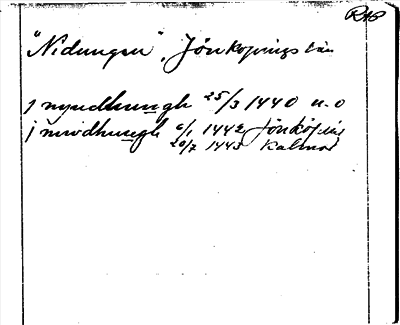 RAP
"Nidungen", Jönköpings län
j nyudhungh 25/3 1440 u.o
j niwdhungh 6/1 1442 Jönköping
20/7 1443 Kalmar